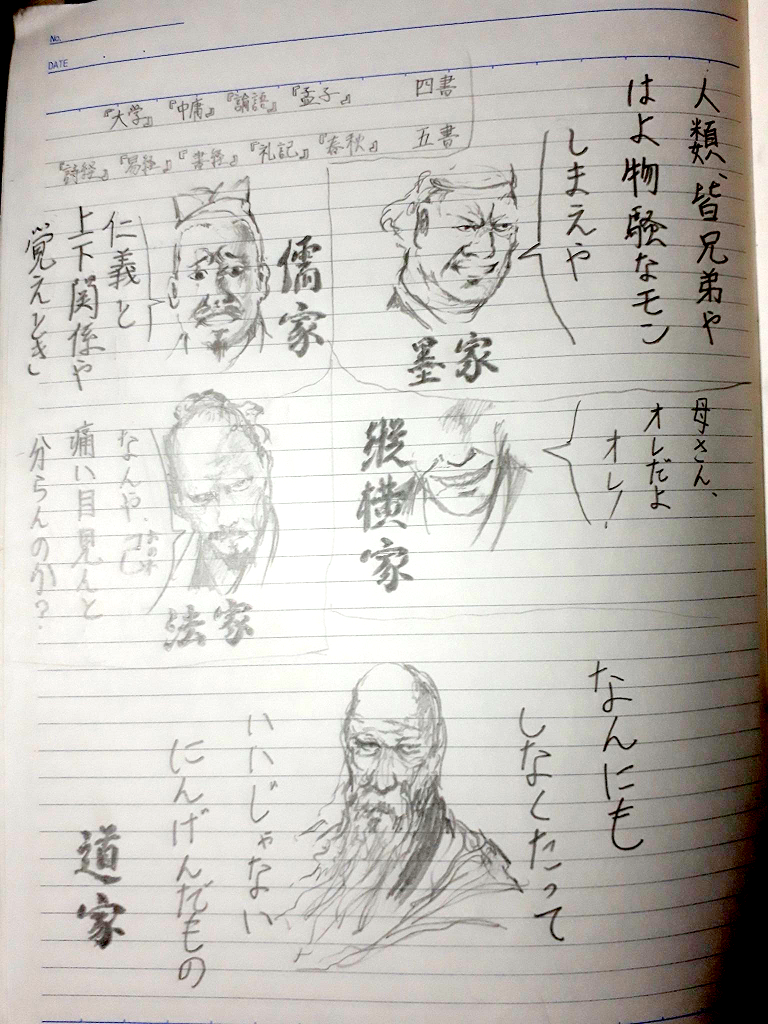 No.
DATE
四書
『孟子』
『論語』
『中庸』
『大学』
五書
『春秋』
『礼記』
『書経』
『易経』
『詩経』
人類、皆兄弟や
はよ物騒なモン
しまえや
墨家
儒家
仁義と
上下関係や
覚えとき」
母さん、
オレだよ
オレ!
縦横家
なんや、己
おのれ
痛い目見んと
分らんのか?
法家
なんにも
しなくたって
いいじゃない
にんげんだもの
道家